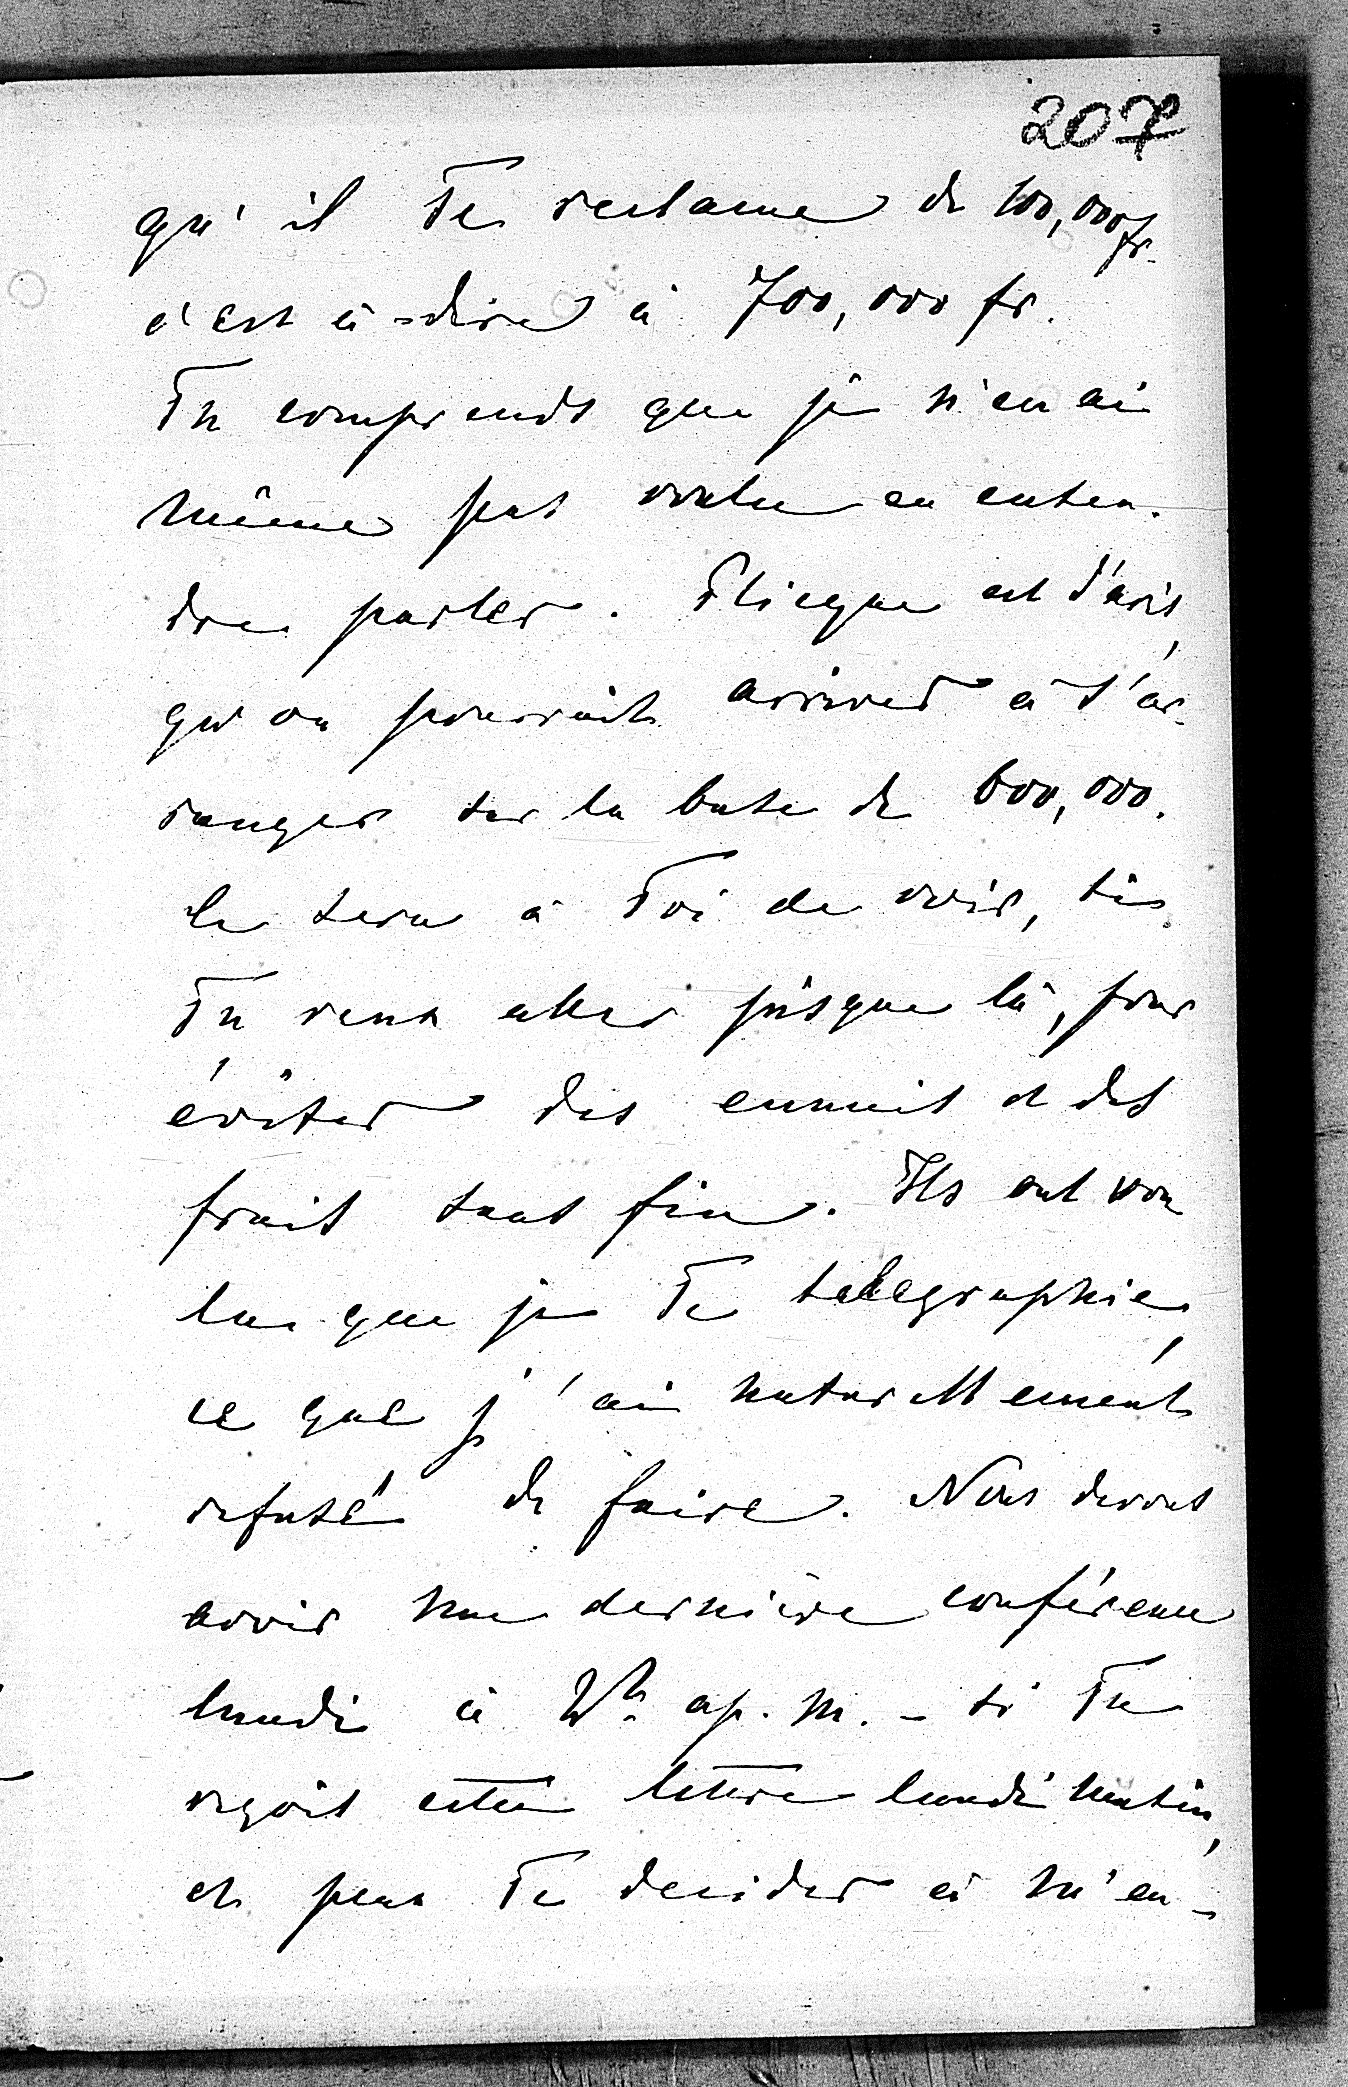 207
qu'il Te reclame de 100,000 fr.
c'est à-dire à 700,000 fr.
Tu comprends que je n'en ai
même pas voulu en enten-
dre parler. Plicque est d'avis,
qu'on pourrait arriver à t'ar-
ranger sur la base de 600,000.
Ce sera à Toi de voir, si
Tu veux aller jusque là, pour
éviter des ennuis et des
frais sans fin. Ils ont vou
lu que je Te telegraphie,
ce que j'ai naturellement
refusé de faire. Nous devons
avoir une dernière conférence
lundi à 2h. ap. m. - si Tu
reçois cette lettre lundi matin,
et peux Te decider à m'en-